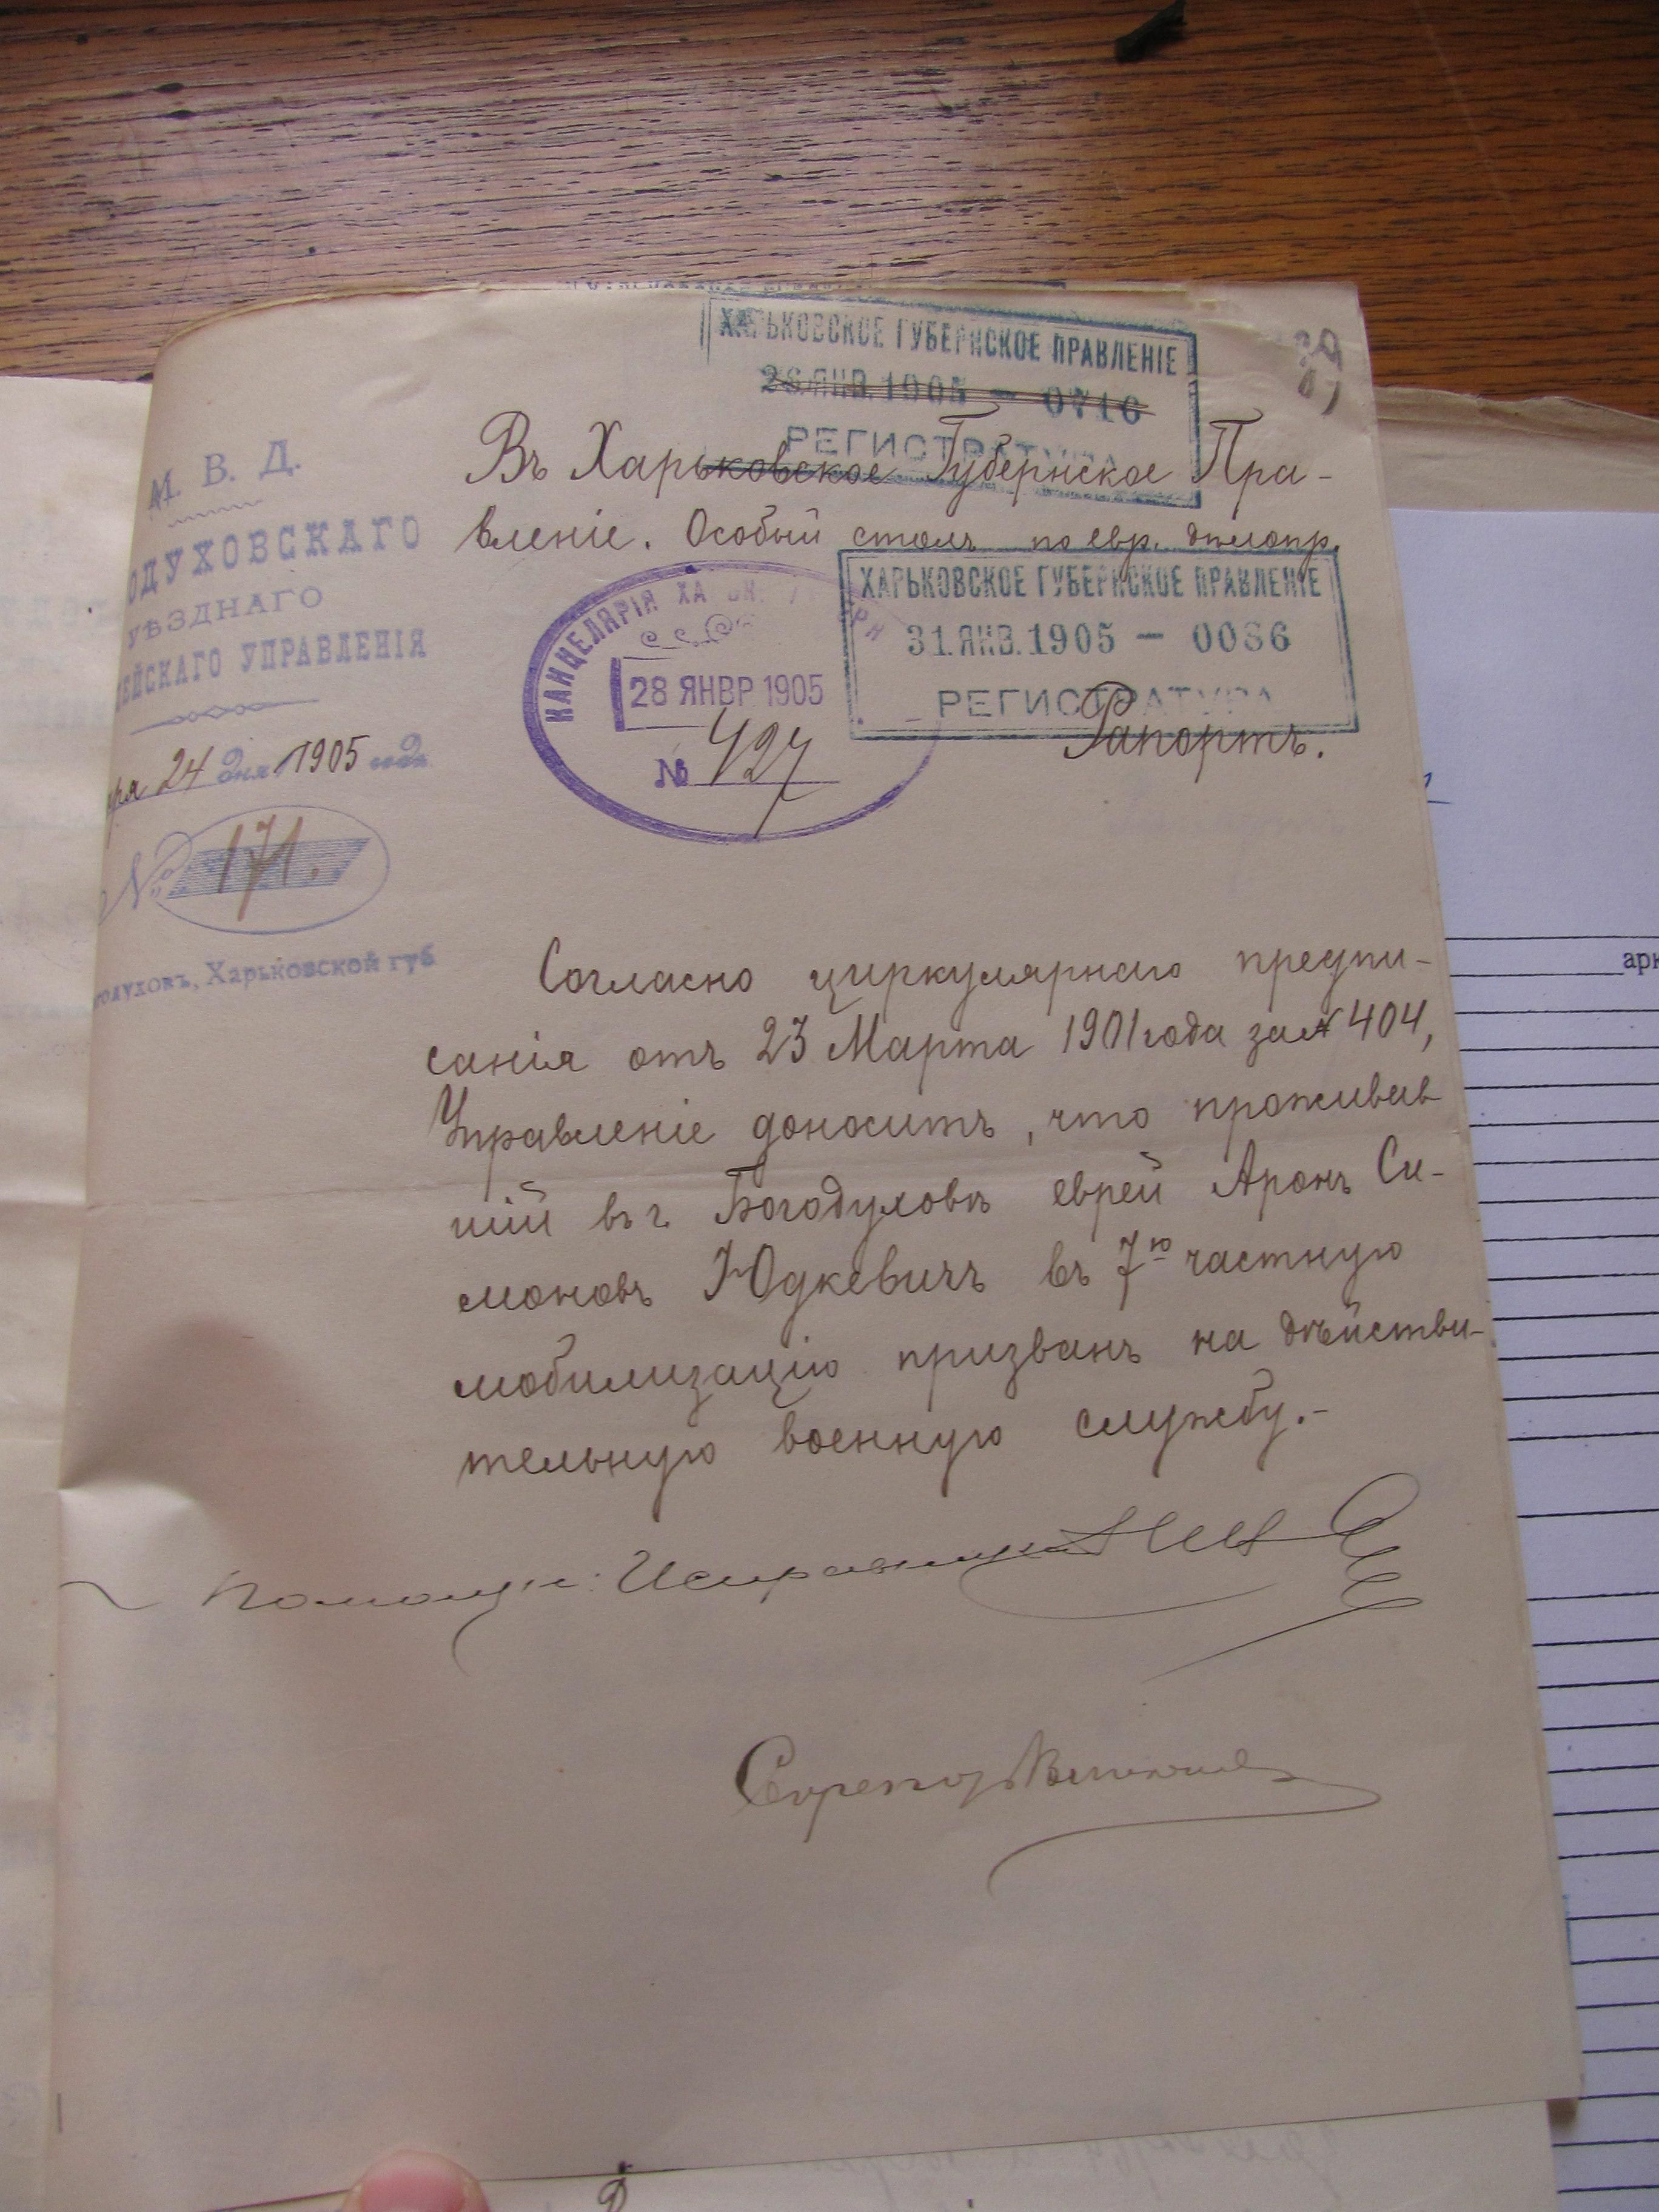 ХАРЬКОВСКОЕ ГУБЕРНСКОЕ ПРАВЛЕНІЕ
28.ЯНВ.1905 — 0716
РЕГИСТРАТУРА
Въ Харьковское Губернское Пра-
вленіе. Особый столъ по евр. дѣлопр.
М. В. Д.
ОДУХОВСКАГО
УѢЗДНАГО
ЕЙСКАГО УПРАВЛЕНІЯ
аря 24 дня 1905 года
№ 171.
годуховъ, Харьковской губ
КАНЦЕЛЯРІЯ ХА
28 ЯНВР 1905
№ 427
ХАРЬКОВСКОЕ ГУБЕРНСКОЕ ПРАВЛЕНІЕ
31.ЯНВ.1905 — 0036
РЕГИСТРАТУРА
Рапортъ.
Согласно циркулярнаго предпи-
санія отъ 23 Марта 1901 года за № 404,
Управленіе доноситъ, что проживав
шій въ г. Богодуховѣ еврей Аронъ Си-
моновъ Юдкевичъ въ 7ю частную
мобилизацію призванъ на дѣйстви-
тельную военную службу.-
Помощн. Исправника
Секретарь
арк